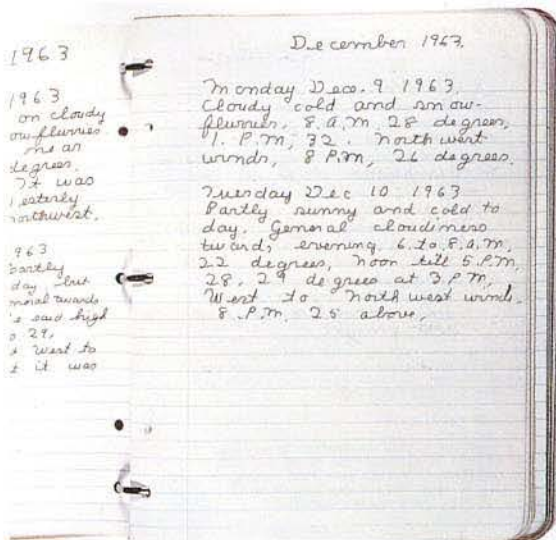 1963
1963
on cloudy
ow flurries
degrees.
It was
esterly
northwest.
963
partly
day but
said high
29,
West to
t it was
December 1963.
Monday Dec. 9 1963.
Cloudy cold and snow-
flurries, 8 a.m. 28 degrees,
1. P.M, 32. North west
winds, 8 P.M, 26 degrees.
Tuesday Dec 10 1963
Partly sunny and cold to
day. General cloudiness
twards evening. 6 to 8 a.m,
22 degrees, noon till 5 P.M,
28, 29 degrees at 3 P.M,
West to North west winds.
8.P.M. 25 above.